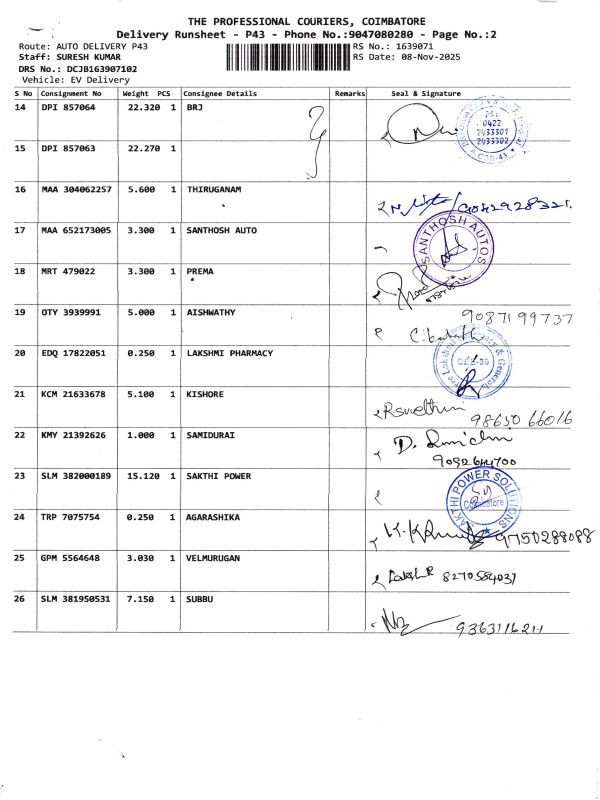 THE PROFESSIONAL COURIERS, COIMBATORE
Delivery Runsheet - P43 - Phone No.:9047080280 - Page No.:2
Route: AUTO DELIVERY P43 RS No.: 1639071
Staff: SURESH KUMAR RS Date: 08-Nov-2025
DRS No.: DCJB163907102
Vehicle: EV Delivery
S No Consignment No Weight PCS Consignee Details Remarks Seal & Signature
14 DPI 857064 22.320 1 BRJ
0422
2433301
2433302
CBE-43
15 DPI 857063 22.270 1
16 MAA 304062257 5.600 1 THIRUGANAM
17 MAA 652173005 3.300 1 SANTHOSH AUTO SANTHOSH AUTOS
18 MRT 479022 3.300 1 PREMA
19 OTY 3939991 5.000 1 AISHWATHY 9087199737
20 EDQ 17822051 0.250 1 LAKSHMI PHARMACY
21 KCM 21633678 5.100 1 KISHORE 98650 66016
22 KMY 21392626 1.000 1 SAMIDURAI
23 SLM 382000189 15.120 1 SAKTHI POWER SAKTHI POWER SOLUTIONS Coimbatore
24 TRP 7075754 0.250 1 AGARASHIKA 9750288088
25 GPM 5564648 3.030 1 VELMURUGAN 8270584037
26 SLM 381950531 7.150 1 SUBBU